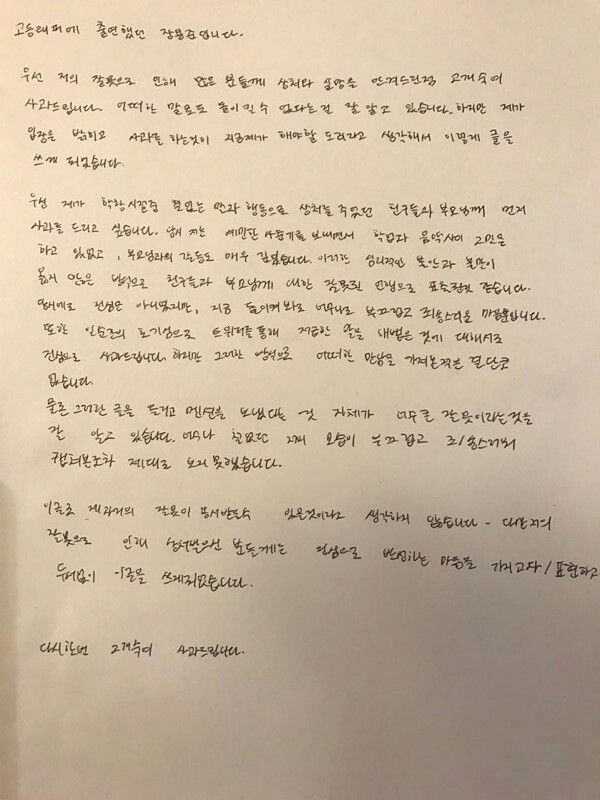 고등래퍼에 출연했던 장용준입니다.
우선 저의 잘못으로 인해 많은 분들께 상처와 실망을 안겨드린점 고개숙여
사과드립니다. 어떠한 말로도 돌이킬 수 없다는걸 잘 알고 있습니다. 하지만 제가
입장을 밝히고 사과를 하는것이 지금제가 해야할 도리라고 생각해서 이렇게 글을
쓰게 되었습니다.
우선 제가 학창시절중 철없는 말과 행동으로 상처를 주었던 친구들과 부모님께 먼저
사과를 드리고 싶습니다. 당시 저는 예민한 사춘기를 보내면서 학업과 음악사이 고민을
하고 있었고, 부모님과의 갈등도 매우 깊었습니다. 이러한 심리적인 불안과 불만이
옳지 않은 방식으로 친구들과 부모님께 대한 잘못된 언행으로 표출된것 같습니다.
당시에도 진심은 아니었지만, 지금 돌이켜봐도 너무나도 부끄럽고 죄송스러운 마음뿐입니다.
또한 일순간의 호기심으로 트위터를 통해 저급한 말을 내뱉은 것에 대해서도
진심으로 사과드립니다. 하지만 그러한 방식으로 어떠한 만남을 가져본적은 결단코
없습니다.
물론 그러한 글을 올리고 멘션을 보냈다는 것 자체가 너무큰 잘못이라는것을
잘 알고 있습니다. 너무나 철없던 저의 모습이 부끄럽고 죄송스러워
캡쳐본조차 제대로 보지 못했습니다.
이글로 제과거의 잘못이 용서받을수 있을것이라고 생각하지 않습니다. 다만 저의
잘못으로 인해 상처받으신 분들께는 진심으로 반성하는 마음을 가지고자/표현하고
두서없이 이글을 쓰게되었습니다.
다시한번 고개숙여 사과드립니다.